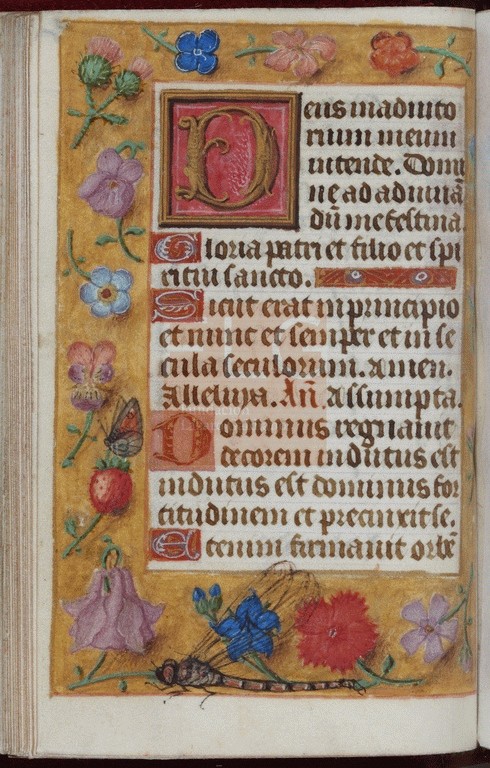 Deus in adiuto
rium meum
intende. Domi
ne ad adiuuā
dū me festina.
Gloria patri et filio et spi
ritui sancto.
Sicut erat in principio
et nunc et semper et in se
cula seculorum. Amen.
Alleluya. An̄. Assumpta.
Dominus regnauit
decorem indutus est
indutus est dominus for
titudinem et precinxit se.
Etenim firmauit orbē